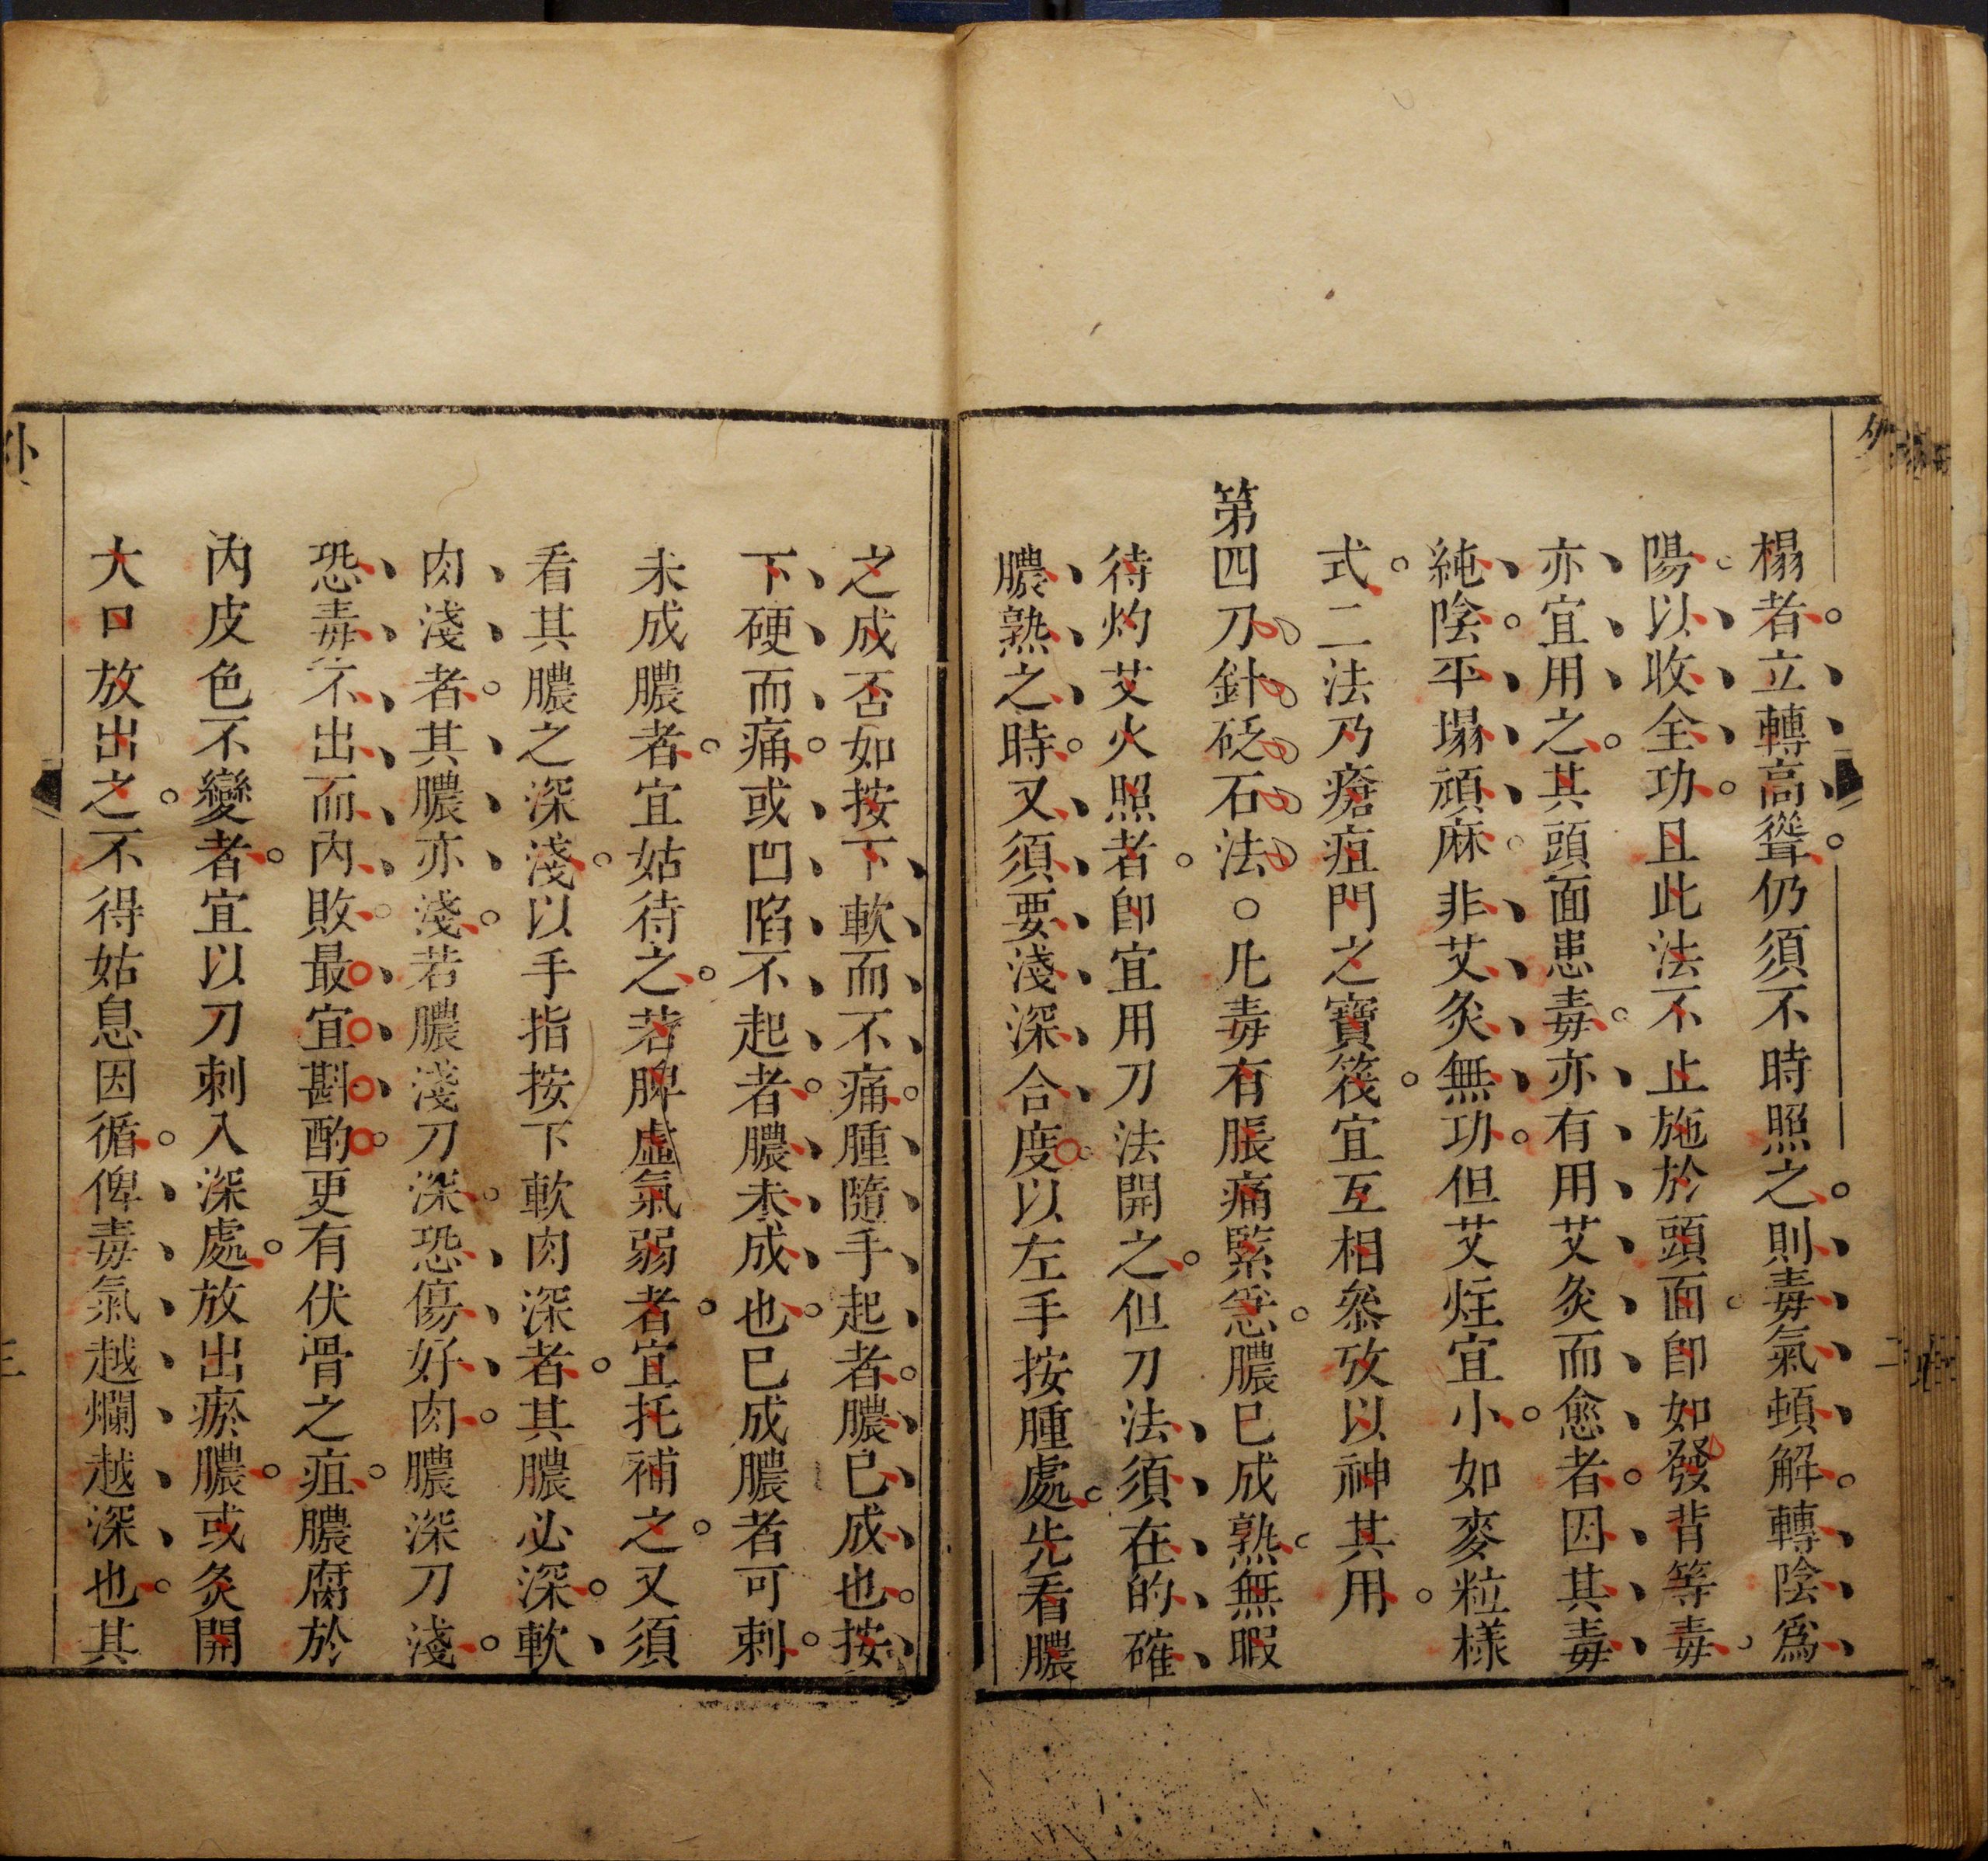 榻者。立轉高聳。仍須不時照之。則毒氣頓解。轉陰爲
陽。以收全功。且此法不止施於頭面。即如發背等毒
亦宜用之。其頭面患毒。亦有用艾灸而愈者。因其毒
純陰。平塌頑麻。非艾灸無功。但艾炷宜小。如麥粒樣
式。二法乃瘡疽門之寶筏。宜互相叅攷以神其用。
第四刀針砭石法。○凡毒有脹痛緊急。膿已成熟。無暇
待灼艾火照者。即宜用刀法開之。但刀法須在的確
膿熟之時。又須要淺深合度。以左手按腫處。先看膿
之成否如按下軟而不痛。腫隨手起者。膿已成也。按
下硬而痛。或凹陷不起者。膿未成也。已成膿者可刺。
未成膿者。宜姑待之。若脾虛氣弱者。宜托補之。又須
看其膿之深淺。以手指按下軟肉深者。其膿必深。軟
肉淺者。其膿亦淺。若膿淺刀深。恐傷好肉。膿深刀淺。
恐毒不出而內敗。最宜斟酌。更有伏骨之疽。膿腐於
內皮色不變者。宜以刀刺入深處。放出瘀膿。或灸開
大口放出之。不得姑息因循。俾毒氣越爛越深也。其
外
三